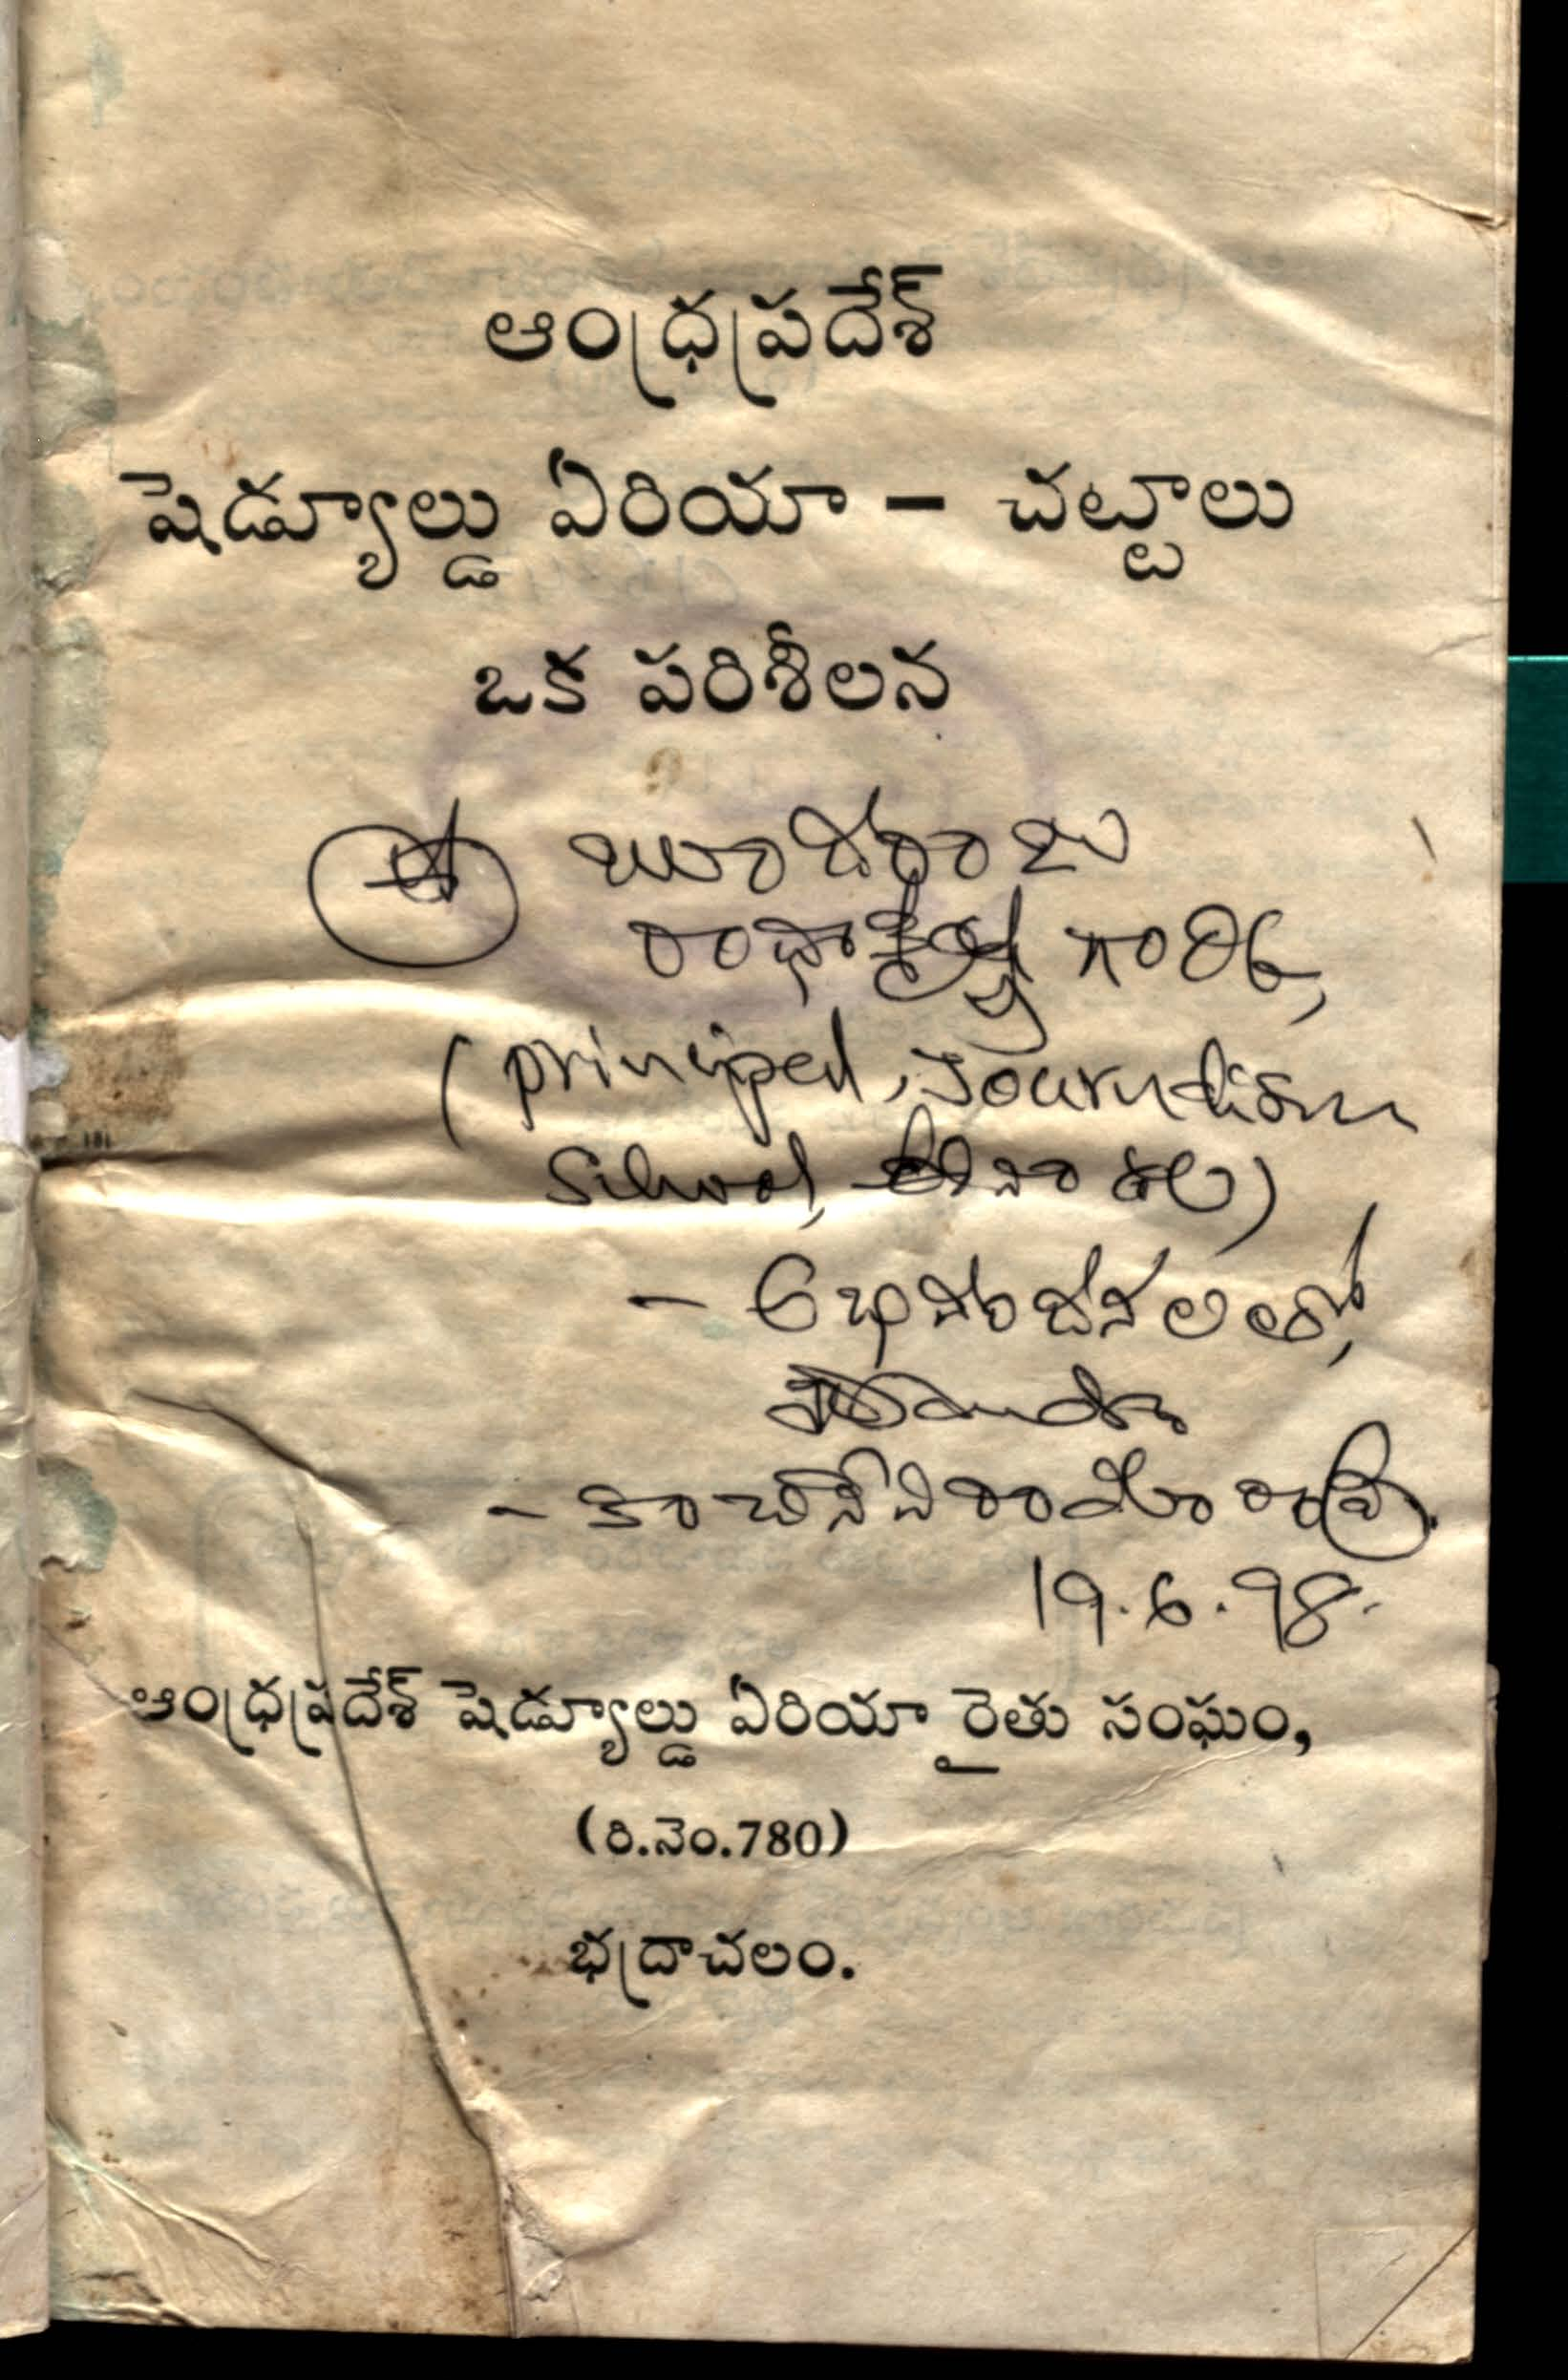 ఆంధ్రప్రదేశ్
షెడ్యూల్డు ఏరియా – చట్టాలు
ఒక పరిశీలన
బూదరాజు
రాధాకృష్ణ గారికి,
(principal, Journalism
School, ఈనాడు)
– అభినందనలతో,
–
19.6.98.
ఆంధ్రప్రదేశ్ షెడ్యూల్డు ఏరియా రైతు సంఘం,
(రి.నెం.780)
భద్రాచలం.